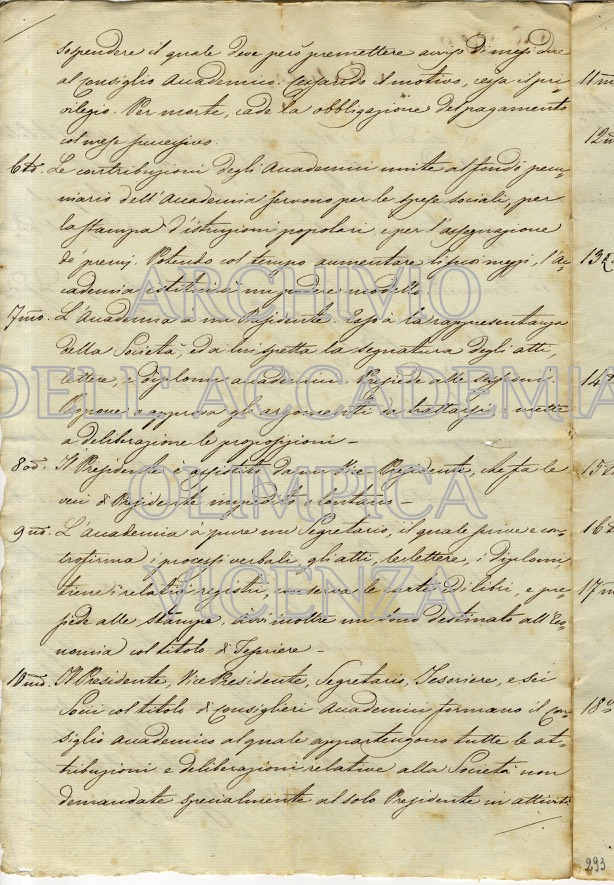 sospendere il quale deve però premettere avviso di mesi due
al Consiglio Academico. Cessando il motivo, cessa il pri-
vilegio. Per morte, cade la obbligazione del pagamento
col mese successivo.
6to. Le contribuzioni degli Academici unite al fondo pecu-
niario dell'Academia servono per le spese sociali, per
la stampa d'istruzioni popolari, e per l'assegnazione
de' premj. Potendo col tempo aumentare li suoi mezzi, l'Ac-
cademia istituirà un podere modello.
7mo. L'Academia a un Presidente. Esso à la rappresentanza
della Società, ed a lui spetta la segnatura degli atti,
lettere, e diplomi academici. Presiede alle sessioni.
Propone o approva gli argomenti da trattarsi e mette
a deliberazione le proposizioni –
8vo. Il Presidente è assistito da un Vice Presidente, che fa le
veci di Presidente impedito o lontano –
9no. L'Academia à pure un Segretario, il quale scrive e con-
trofirma i processi verbali gli atti, le lettere, i Diplomi
tiene i relativi registri, conserva le carte ed i libri, e pre-
siede alle stampe. Avvi inoltre un Socio destinato all'Eco-
nomia col titolo di Tesoriere –
10mo. Il Presidente, Vice Presidente, Segretario, Tesoriere, e sei
Socii col titolo di Consiglieri Academici formano il Con-
siglio Academico al quale appartengono tutte le at-
tribuzioni e deliberazioni relative alla Società non
demandate specialmente al solo Presidente in attività
11m
12m
13z
14t
15t
16t
17m
18o
293
ARCHIVIO
DELL'ACCADEMIA
OLIMPICA
VICENZA